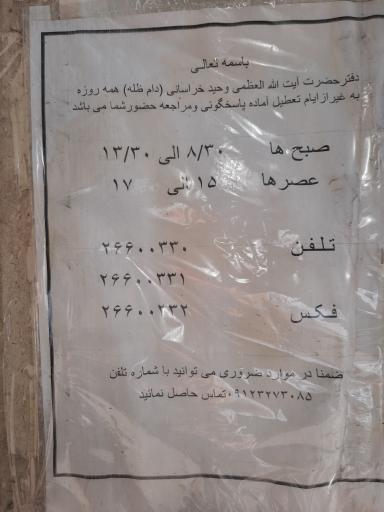 باسمه تعالی
دفتر حضرت آیت الله العظمی وحید خراسانی (دام ظله) همه روزه
به غیر از ایام تعطیل آماده پاسخگوئی ومراجعه حضور شما می باشد
صبح ها ۸/۳۰ الی ۱۳/۳۰
عصرها ۱۵ الی ۱۷
تلفن ۲۶۶۰۰۳۳۰
۲۶۶۰۰۳۳۱
فکس ۲۶۶۰۰۲۳۲
ضمنا در موارد ضروری می توانید با شماره تلفن
۰۹۱۲۳۲۷۳۰۸۵ تماس حاصل نمائید